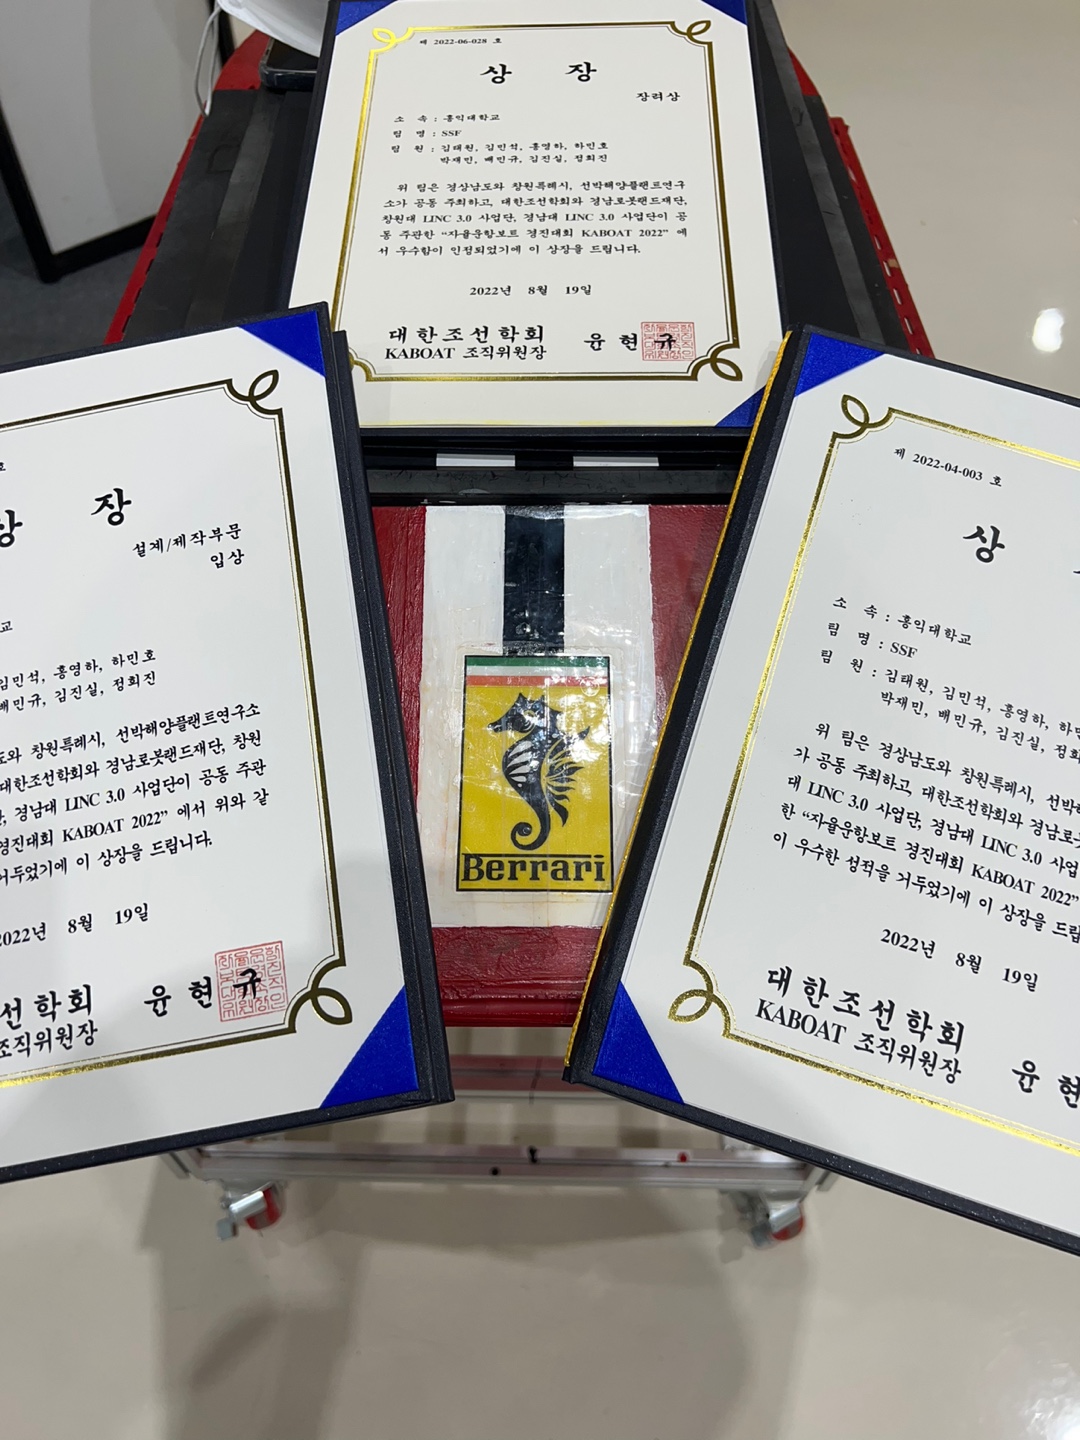 제 2022-06-028 호
상 장
장려상
소 속 : 홍익대학교
팀 명 : SSF
팀 원 : 김태원, 김민석, 홍영하, 하민호
박재민, 배민규, 김진실, 정희진
위 팀은 경상남도와 창원특례시, 선박해양플랜트연구
소가 공동 주최하고, 대한조선학회와 경남로봇랜드재단,
창원대 LINC 3.0 사업단, 경남대 LINC 3.0 사업단이 공
동 주관한 “자율운항보트 경진대회 KABOAT 2022” 에
서 우수함이 인정되었기에 이 상장을 드립니다.
2022년 8월 19일
대한조선학회
KABOAT 조직위원장 윤현규
호
상 장
설계/제작부문
입상
교
김민석, 홍영하, 하민호
배민규, 김진실, 정희진
도와 창원특례시, 선박해양플랜트연구소
대한조선학회와 경남로봇랜드재단, 창원
단, 경남대 LINC 3.0 사업단이 공동 주관
경진대회 KABOAT 2022” 에서 위와 같
거두었기에 이 상장을 드립니다.
2022년 8월 19일
선학회
조직위원장 윤현규
Berrari
제 2022-04-003 호
상
소 속 : 홍익대학교
팀 명 : SSF
팀 원 : 김태원, 김민석, 홍영하, 하민
박재민, 배민규, 김진실, 정희
위 팀은 경상남도와 창원특례시, 선박해
가 공동 주최하고, 대한조선학회와 경남로봇
대 LINC 3.0 사업단, 경남대 LINC 3.0 사업
한 “자율운항보트 경진대회 KABOAT 2022”
이 우수한 성적을 거두었기에 이 상장을 드립
2022년 8월 19일
대한조선학회
KABOAT 조직위원장 윤현